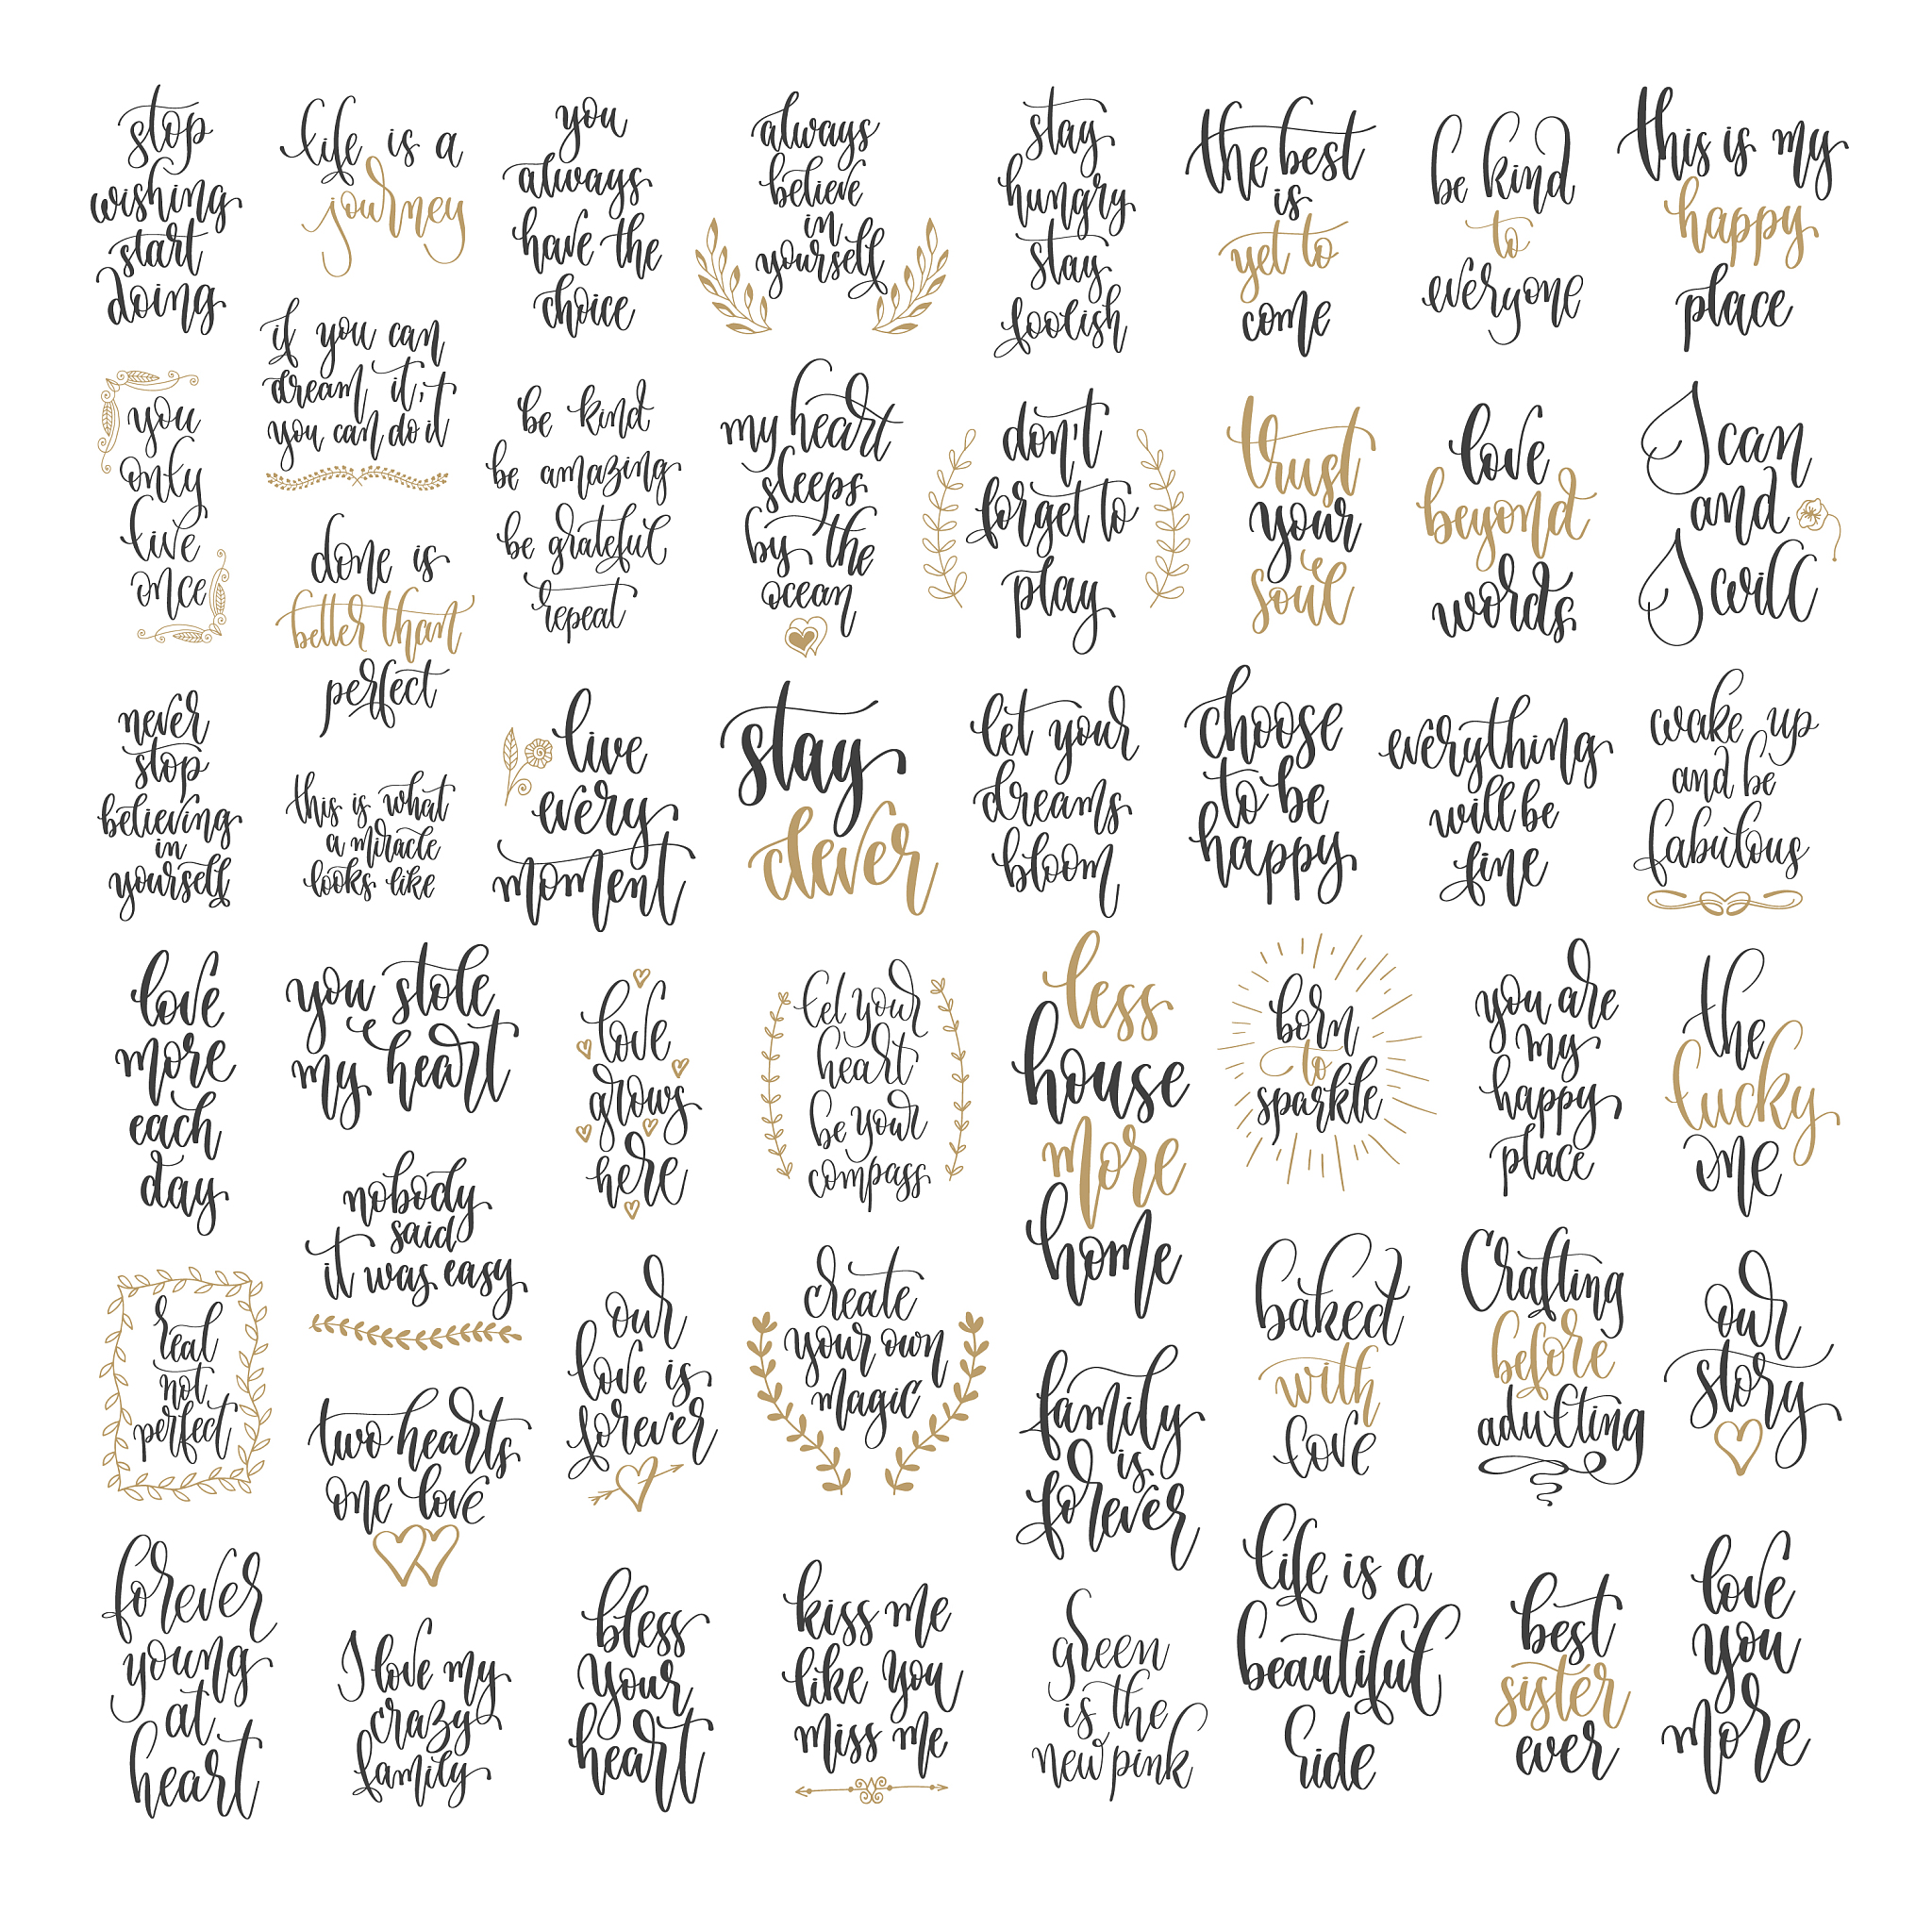 stop
wishing
start
doing
life is a
journey
you
always
have the
choice
always
believe
in
yourself
stay
hungry
stay
foolish
the best
is
yet to
come
be kind
to
everyone
this is my
happy
place
you
only
live
once
if you can
dream it,
you can do it
done is
better than
perfect
be kind
be amazing
be grateful
repeat
my heart
sleeps
by the
ocean
don't
forget to
play
trust
your
soul
love
beyond
words
I can
and
I will
never
stop
believing
in
yourself
this is what
a miracle
looks like
live
every
moment
stay
clever
let your
dreams
bloom
choose
to be
happy
everything
will be
fine
wake up
and be
fabulous
love
more
each
day
you stole
my heart
nobody
said
it was easy
love
grows
here
let your
heart
be your
compass
less
house
more
home
born
to
sparkle
you are
my
happy
place
the
lucky
one
real
not
perfect
two hearts
one love
our
love is
forever
create
your own
magic
family
is
forever
baked
with
love
Crafting
before
adulting
our
story
forever
young
at
heart
I love my
crazy
family
bless
your
heart
kiss me
like you
miss me
green
is the
new pink
life is a
beautiful
ride
best
sister
ever
love
you
more